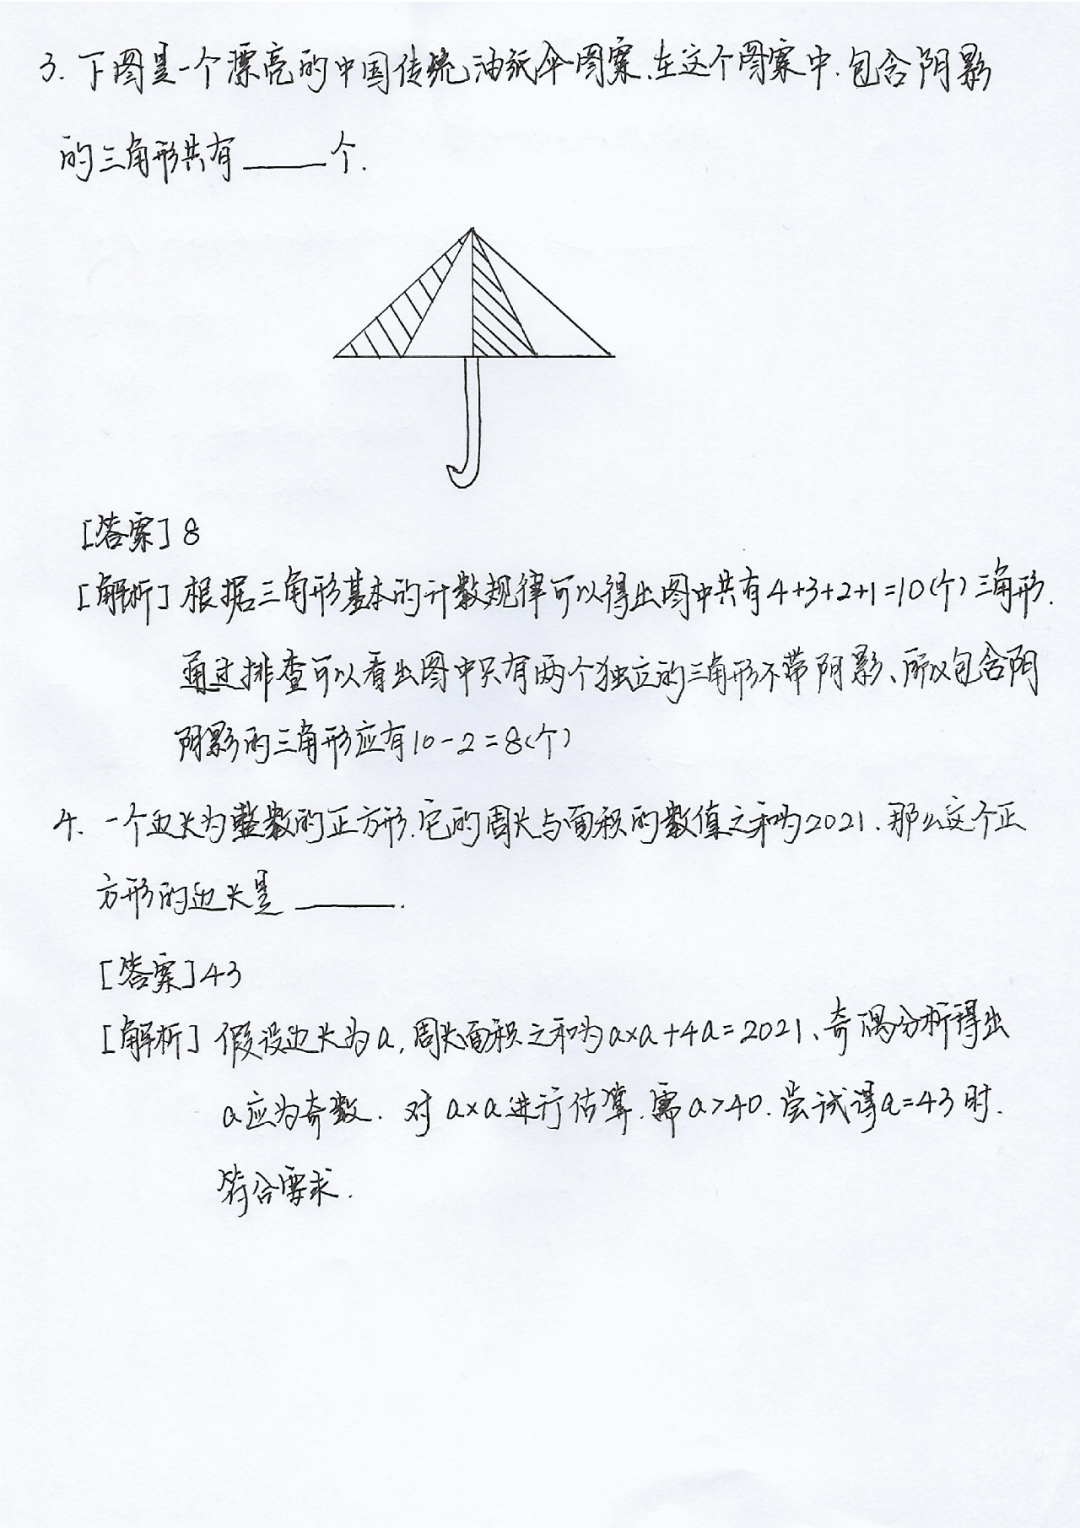 3. 下图是一个漂亮的中国传统油纸伞图案.在这个图案中.包含阴影
的三角形共有____个.
[答案] 8
[解析] 根据三角形基本的计数规律可以得出图中共有4+3+2+1=10(个)三角形.
通过排查可以看出图中只有两个独立的三角形不带阴影、所以包含阴
阴影的三角形应有10-2=8(个)
4. 一个边长为整数的正方形.它的周长与面积的数值之和为2021.那么这个正
方形的边长是____.
[答案]43
[解析] 假设边长为a,周长面积之和为a×a+4a=2021、奇偶分析得出
a应为奇数. 对a×a进行估算.需a>40.尝试得a=43时.
符合要求.